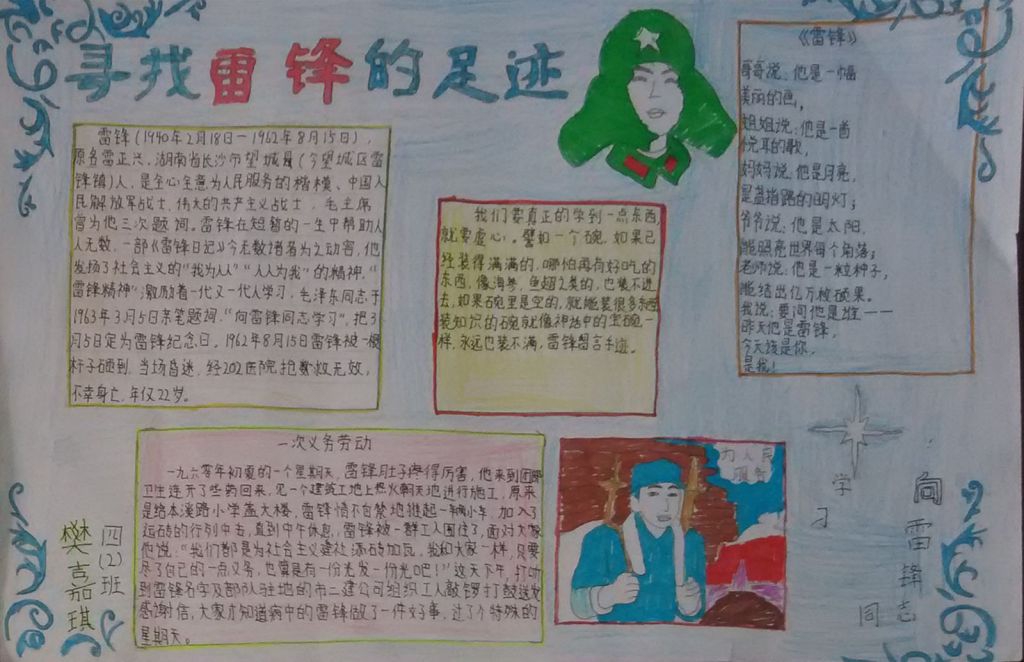 寻找雷锋的足迹
雷锋(1940年2月18日—1962年8月15日),
原名雷正兴,湖南省长沙市望城县(今望城区雷
锋镇)人,是全心全意为人民服务的楷模、中国人
民解放军战士,伟大的共产主义战士,毛主席
曾为他三次题词。雷锋在短暂的一生中帮助人
人无数,一部《雷锋日记》令无数读者为之动容,他
发扬了社会主义的“我为人人”“人人为我”的精神,“
雷锋精神”激励着一代又一代人学习,毛泽东同志于
1963年3月5日亲笔题词:“向雷锋同志学习”,把3
月5日定为雷锋纪念日。1962年8月15日雷锋被一根
杆子砸到,当场昏迷,经202医院抢救无效,
不幸身亡,年仅22岁。
我们要真正的学到一点东西
就要虚心。譬如一个碗,如果已
经装得满满的,哪怕再有好吃的
东西,像海参、鱼翅之类的,也装不进
去,如果碗里是空的,就能装很多东西
装知识的碗就像神话中的宝碗一
样,永远也装不满,雷锋留言手迹。
《雷锋》
哥哥说:他是一幅
美丽的画,
姐姐说:他是一首
悦耳的歌,
妈妈说:他是月亮,
是盏指路的明灯;
爷爷说:他是太阳,
能照亮世界每个角落;
老师说:他是一粒种子,
能结出亿万枚硕果。
我说:要问他是谁——
昨天他是雷锋,
今天该是你,
是我!
一次义务劳动
一九六零年初夏的一个星期天,雷锋肚子疼得厉害,他来到团部
卫生连开了些药回来,见一个建筑工地上热火朝天地进行施工,原来
是给本溪路小学盖大楼,雷锋情不自禁地推起一辆小车,加入了
运砖的行列中去,直到中午休息,雷锋被一群工人围住了,面对大家
他说:“我们都是为社会主义建设添砖加瓦,我和大家一样,只要
尽了自己的一点义务,也算是有一份光发一份光吧!”这天下午,打听
到雷锋名字及部队驻地的市二建公司组织工人敲锣打鼓送来
感谢信,大家才知道病中的雷锋做了一件好事,过了个特殊的
星期天。
为人民
服务
向雷锋同志
学习
四(2)班
樊吉嘉琪